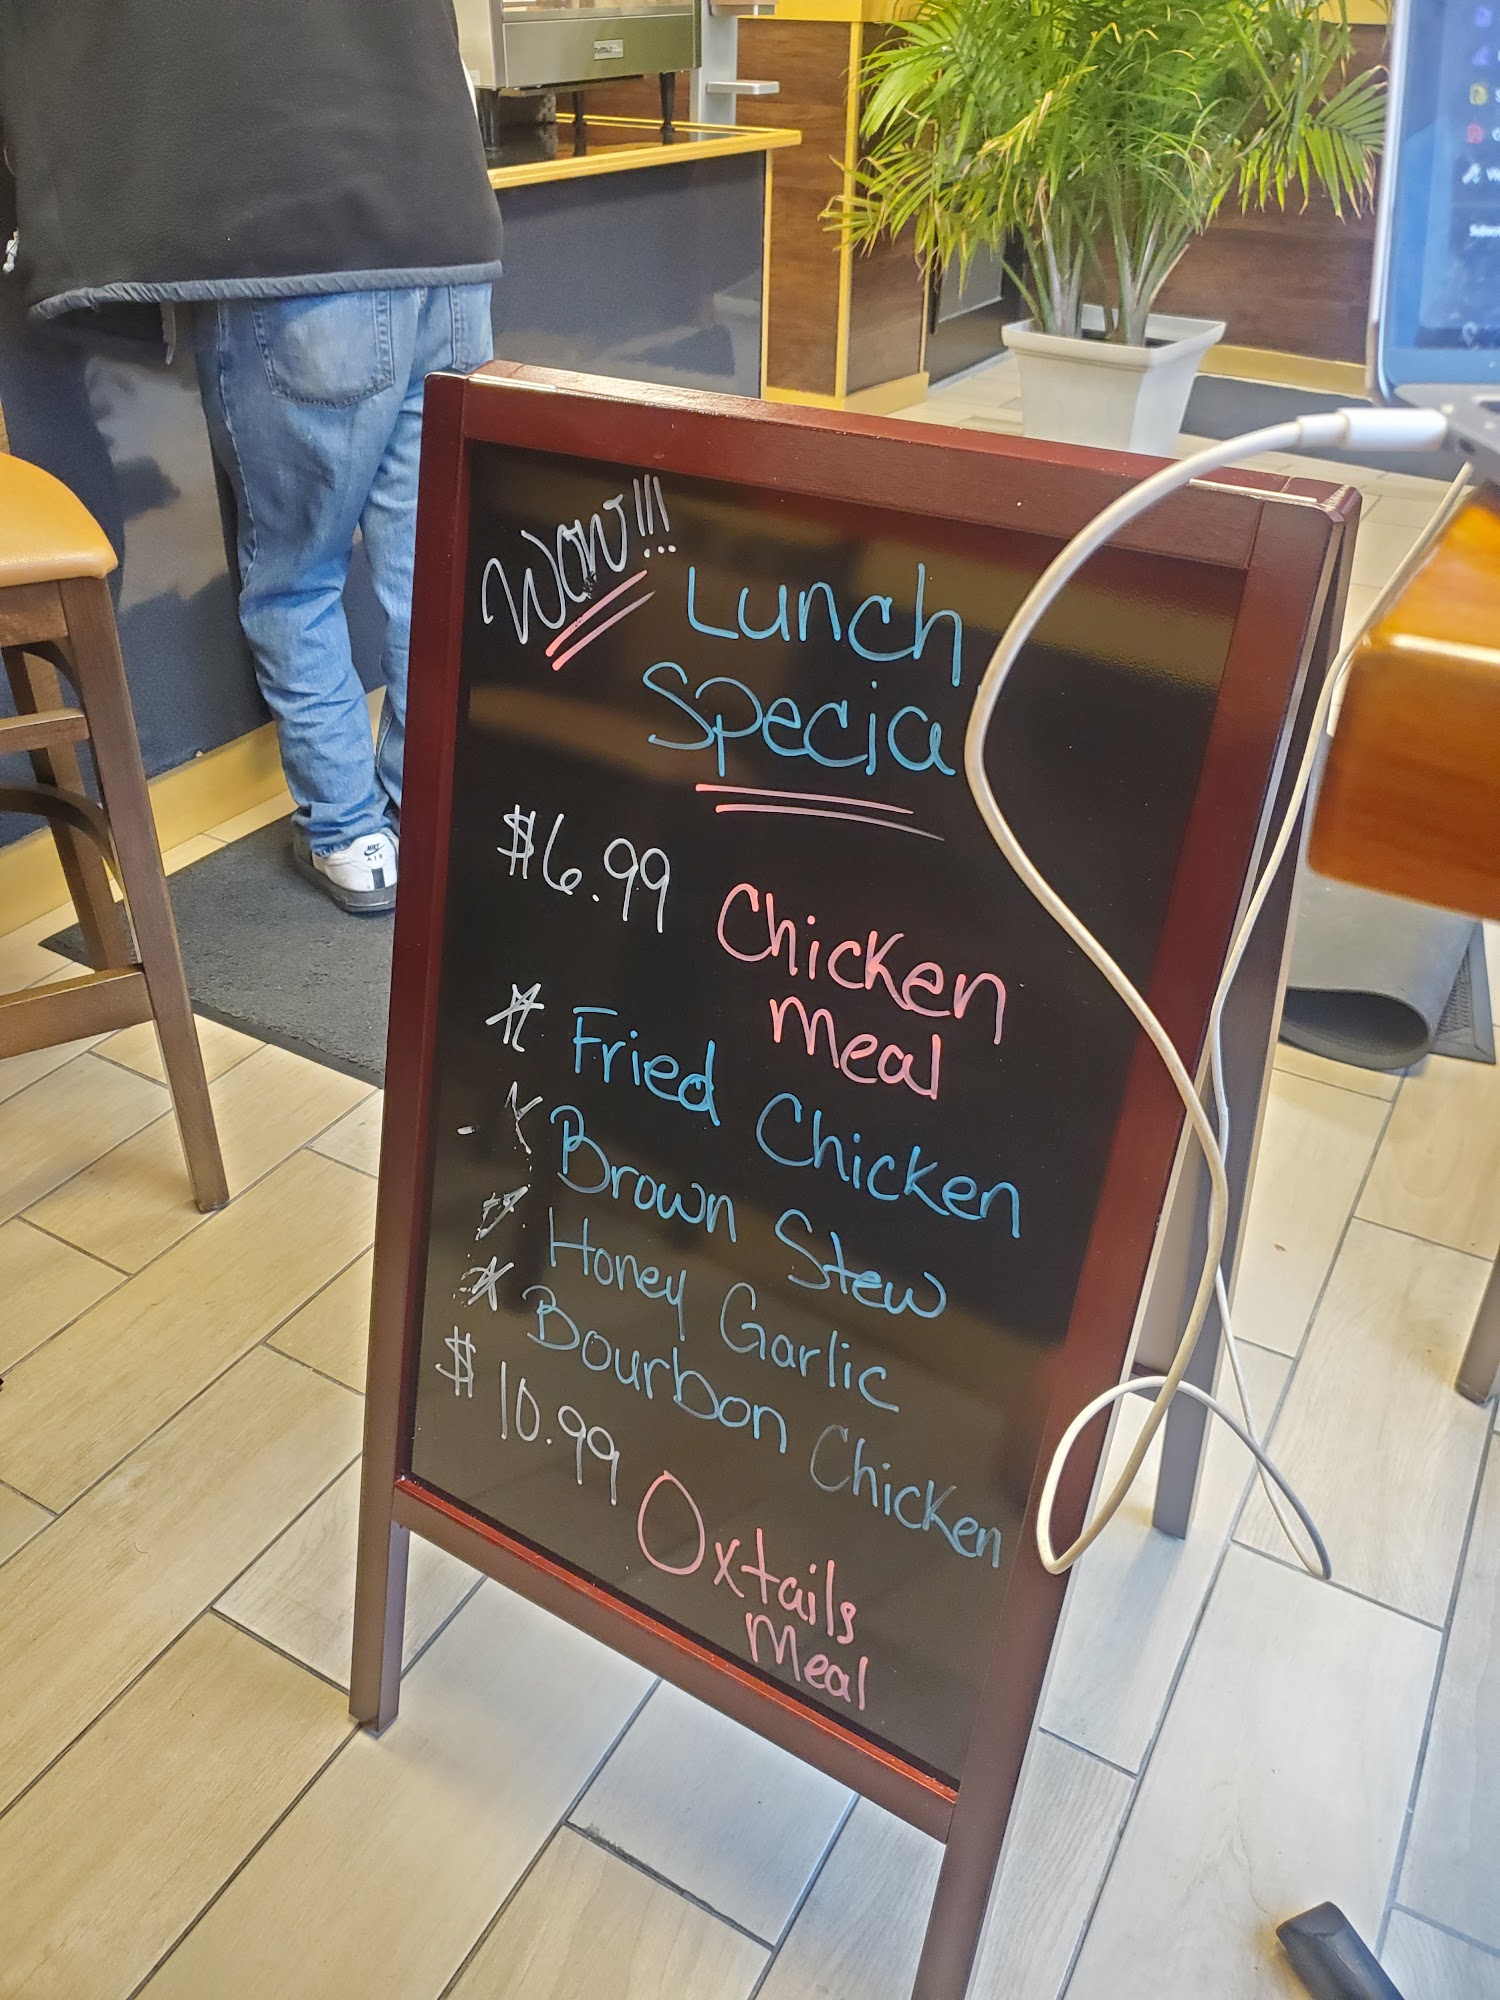 Wow!!! Lunch
Specia
$6.99 Chicken
Meal
Fried Chicken
Brown Stew
Honey Garlic
Bourbon Chicken
$10.99 Oxtails
Meal
NIKE
AIR